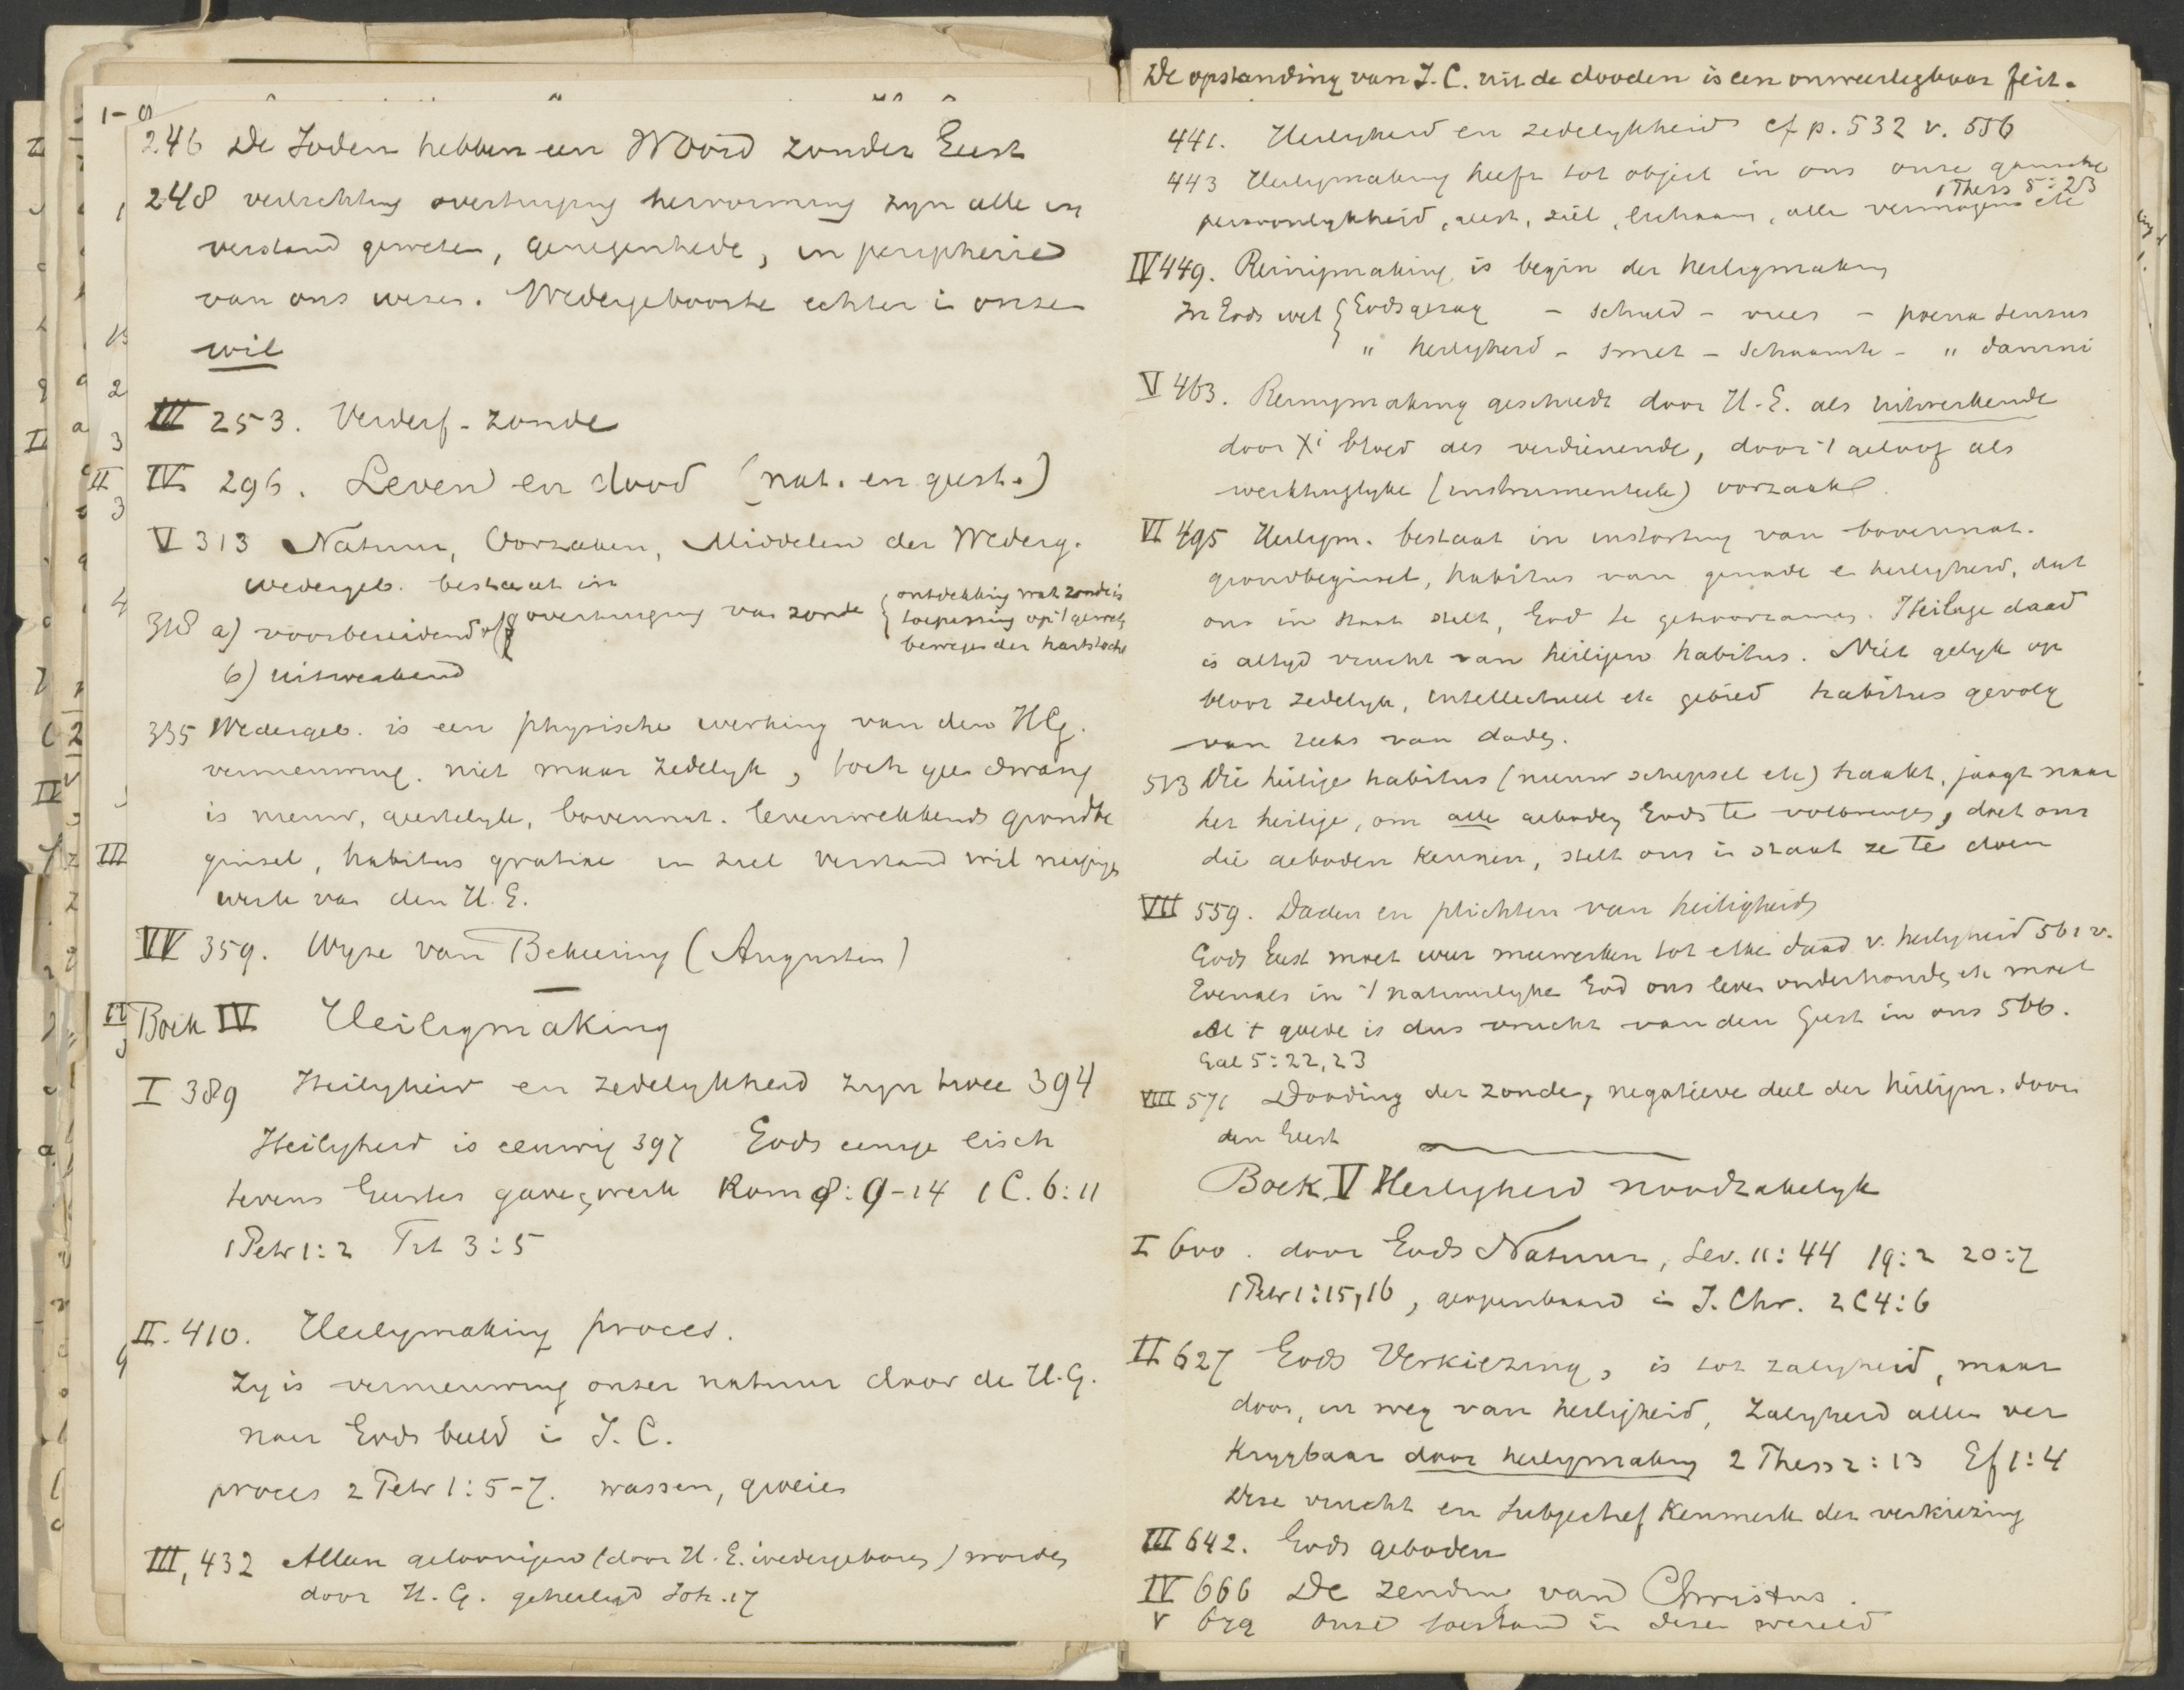 246 De Joden hebben een Woord zonder Geest
248 verlichting overtuiging hervorming zyn alle in
verstand geweten, genegenhede, in peripherie
van ons wezen. Wedergeboorte echter in onze
wil
III 253. Verderf-zonde
IV 296. Leven en dood (nat. en geest.)
V 313 Natuur, Oorzaken, Middelen der Wederg.
wedergeb. bestaat in
318 a) voorbereidend overtuiging van zonde { ontdekking wat zonde is
toepassing op 't gewet.
bewegen der hartstocht
b) uitwerkend
335 Wedergeb. is een physische werking van den HG.
vernieuwing. niet maar zedelyk, toch geen dwang
is nieuw, geestelyk, bovennat. levenwekkends grondbe
ginsel, habitus gratiae in ziel verstand wil neigingen
werk van den H. G.
VI 359. Wyze van Bekeering (Augustin)
Boek IV Heiligmaking
I 389 Heiligheid en zedelykheid zyn twee 394
Heiligheid is eeuwig 397 Gods eenige eisch
tevens Geestes gave, werk Rom 8:9-14 1 C. 6:11
1 Petr 1:2 Tit 3:5
II. 410. Heiligmaking proces.
Zy is vernieuwing onzer natuur door de H.G.
naar Gods beeld in J. C.
proces 2 Petr 1:5-7. wassen, groeien
III, 432 Alleen geloovigen (door H. G. wedergeboren) worden
door H. G. geheiligd Joh. 17
De opstanding van J. C. uit de dooden is een onweerlegbaar feit.
441. Heiligheid en zedelykheid cf p. 532 v. 556
443 Heiligmaking heeft tot object in ons onze gansche
1 Thess 5:23
persoonlykheid, geest, ziel, lichaam, alle vermogens etc
IV 449. Reinigmaking is begin der heiligmaking
In Gods wet { Gods gezag - schuld - vrees - poena sensus
" heiligheid - smet - schaamte - " damni
V 463. Reinigmaking geschiedt door H. G. als uitwerkende
door Xi bloed als verdienende, door 't geloof als
werktuiglyke (instrumenteele) oorzaak.
VI 495 Heiligm. bestaat in instorting van bovennat.
grondbeginsel, habitus van genade en heiligheid, dat
ons in staat stelt, God te gehoorzamen. Heilige daad
is altyd vrucht van heiligen habitus. Niet gelyk op
bloot zedelyk, intellectueel etc gebied habitus gevolg
van reeks van daden.
513 Die heilige habitus (nieuw schepsel etc) haakt, jaagt naar
het heilige, om alle geboden Gods te volbrengen, doet ons
die geboden kennen, stelt ons in staat ze te doen
VII 559. Daden en plichten van heiligheid
Gods Geest moet weer meewerken tot elke daad v. heiligheid 561 v.
Evenals in 't natuurlyke God ons leven onderhouden etc moet
Al 't goede is dus vrucht van den Geest in ons 566.
Gal 5:22,23
VIII 571 Dooding der zonde, negatieve deel der heiligm. door
den Geest
Boek V Heiligheid noodzakelyk
I 600. door Gods Natuur, Lev. 11:44 19:2 20:7
1 Petr 1:15,16, geopenbaard in J. Chr. 2 C 4:6
II 627 Gods Verkiezing, is tot zaligheid, maar
door, in weg van heiligheid, zaligheid alleen ver
krygbaar door heiligmaking 2 Thess 2:13 Ef 1:4
Deze vrucht en subjectief kenmerk der verkiezing
III 642. Gods geboden
IV 666 De zending van Christus.
V 679 onze toestand in deze wereld